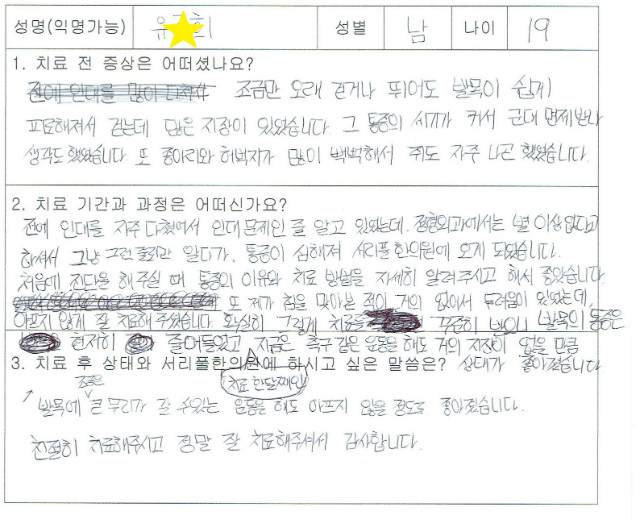 성명(익명가능) 유 희 성별 남 나이 19
1. 치료 전 증상은 어떠셨나요?
조금만 오래 걷거나 뛰어도 발목이 쉽게
피로해져서 걷는데 많은 지장이 있었습니다. 그 통증의 세기가 커서 군대 면제받나
생각도 했었습니다. 또 종아리와 허벅지가 많이 빡빡해서 쥐도 자주 나곤 했었습니다.
2. 치료 기간과 과정은 어떠신가요?
전에 인대를 자주 다쳤어서 인대 문제인 줄 알고 있었는데, 정형외과에서는 별 이상 없다고
하셔서 그냥 그런 줄 알다가, 통증이 심해져 서리풀한의원에 오게 되었습니다.
처음에 진단을 해주실 때 통증의 이유와 치료 방법을 자세히 알려주시고 해서 좋았습니다.
또 제가 침을 맞아본 적이 거의 없어서 두려움이 있었는데,
아프지 않게 잘 치료해 주셨습니다. 확실히 그렇게 치료를 꾸준히 받으니 발목의 통증은
현저히 줄어들었고 지금은 족구 같은 운동을 해도 거의 지장이 없을 만큼
3. 치료 후 상태와 서리풀한의원에 하시고 싶은 말씀은? 상태가 좋아졌습니다.
치료 한달째인
발목에 큰 무리가 갈 수 있는 운동을 해도 아프지 않을 정도로 좋아졌습니다.
친절히 치료해주시고 정말 잘 치료해주셔서 감사합니다.